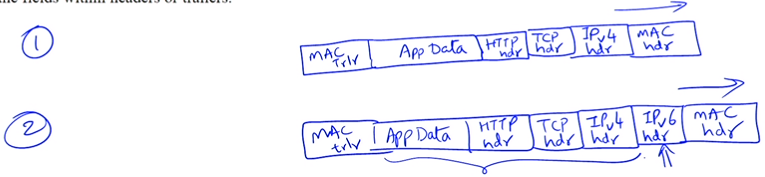 the fields within headers or trailers.
1
MAC Trlr App Data HTTP hdr TCP hdr IPv4 hdr MAC hdr
2
MAC trlr App Data HTTP hdr TCP hdr IPv4 hdr IPv6 hdr MAC hdr